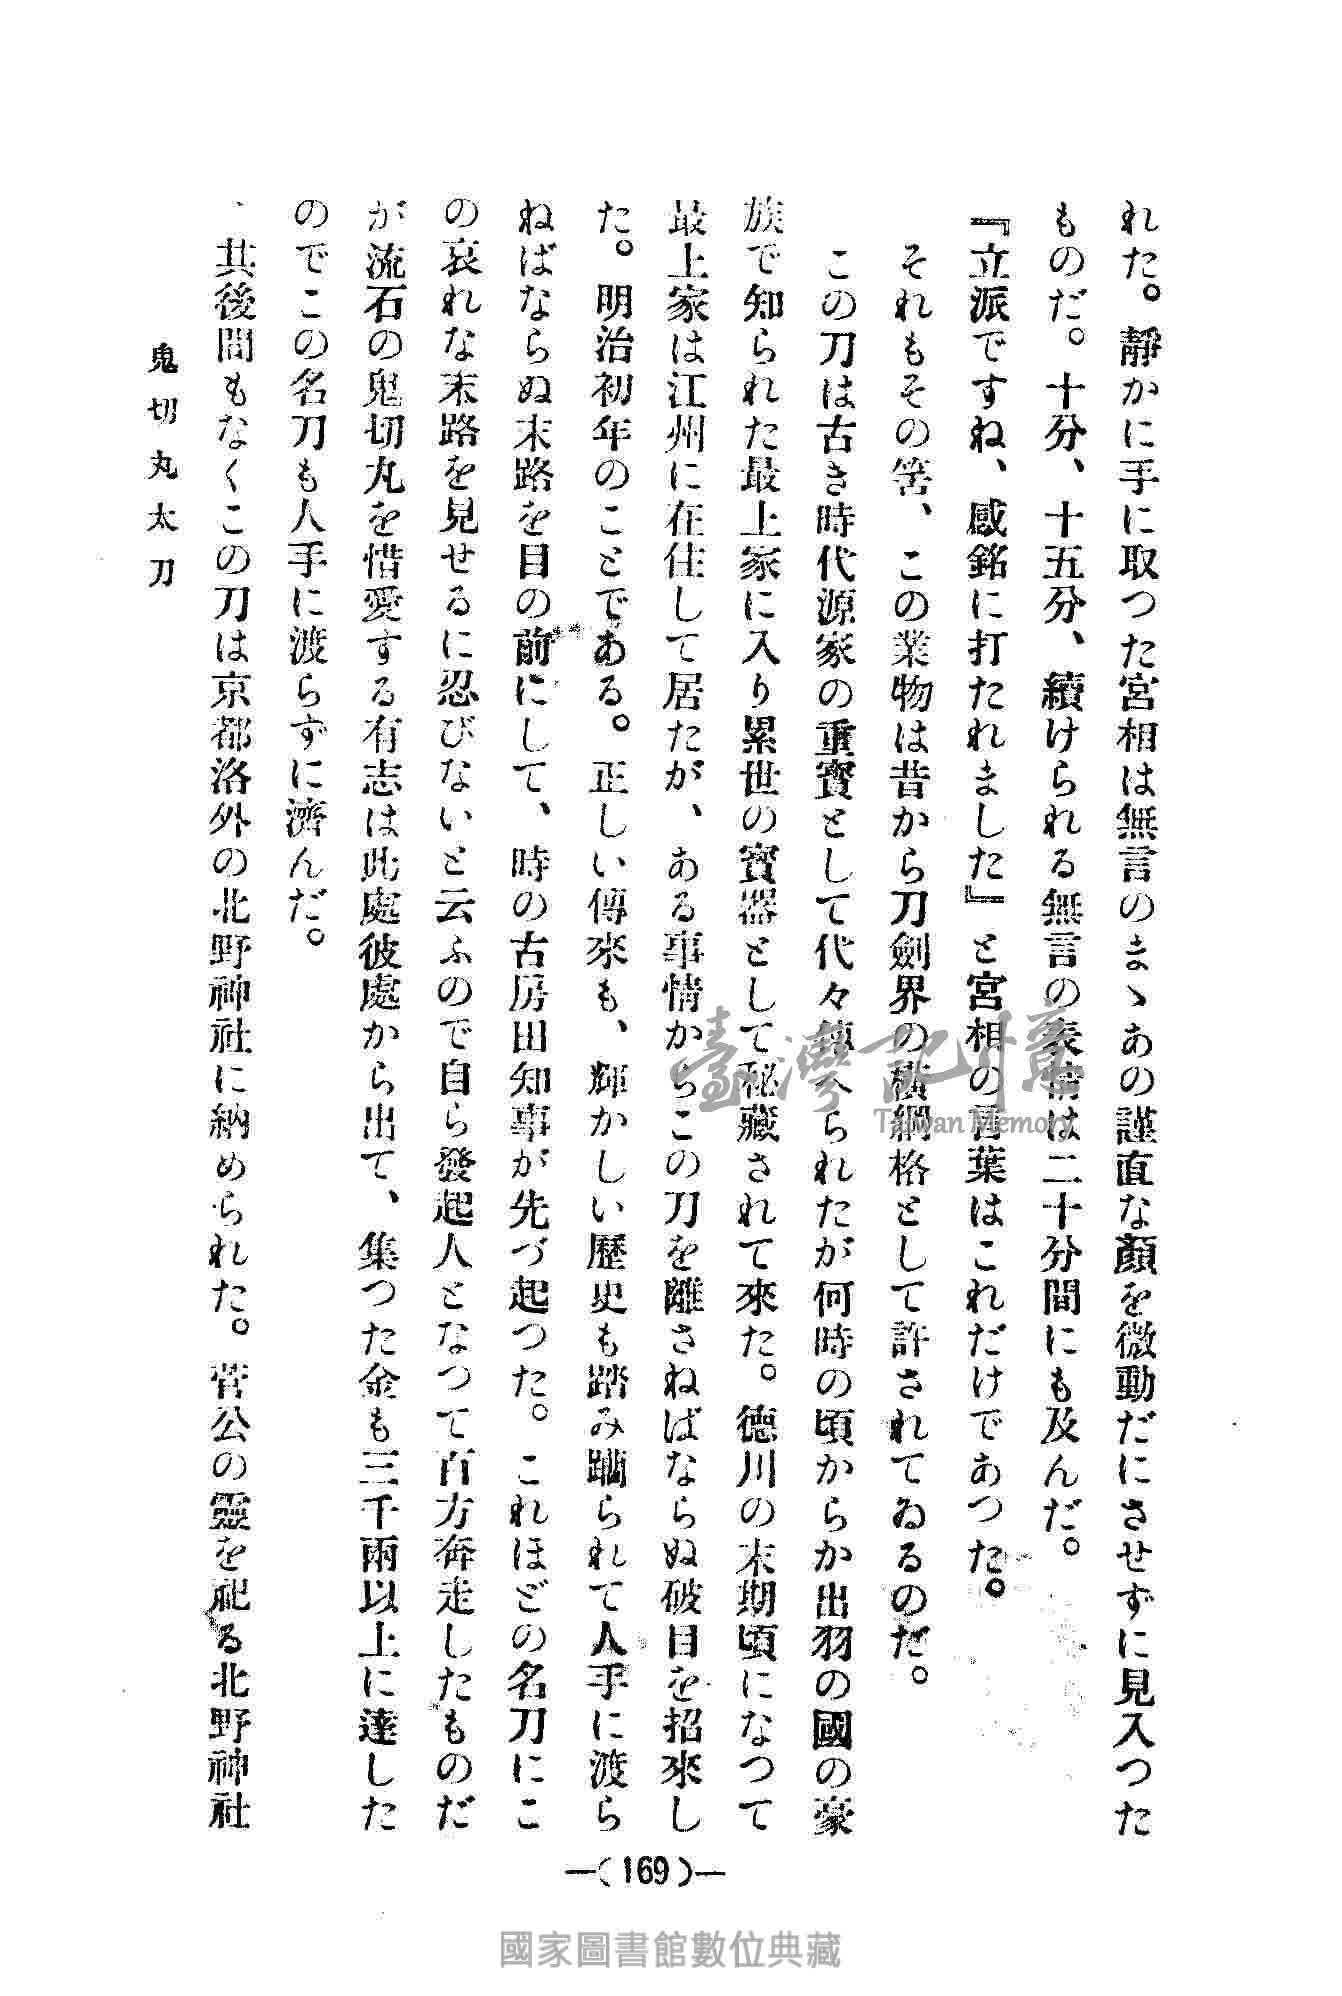 れた。靜かに手に取つた宮相は無言のまゝあの謹直な顏を微動だにさせずに見入つた
ものだ。十分、十五分、續けられる無言の表情は二十分間にも及んだ。
『立派ですね、感銘に打たれました』と宮相の言葉はこれだけであつた。
それもその筈、この業物は昔から刀劍界の横綱格として許されてゐるのだ。
この刀は古き時代源家の重寶として代々傳へられたが何時の頃からか出羽の國の豪
族で知られた最上家に入り累世の寶器として秘藏されて來た。徳川の末期頃になつて
最上家は江州に在住して居たが、ある事情からこの刀を離さねばならぬ破目を招來し
た。明治初年のことである。正しい傳來も、輝かしい歷史も踏み躙られて人手に渡ら
ねばならぬ末路を目の前にして、時の古房田知事が先づ起つた。これほどの名刀にこ
の哀れな末路を見せるに忍びないと云ふので自ら發起人となつて百方奔走したものだ
が流石の鬼切丸を惜愛する有志は此處彼處から出て、集つた金も三千兩以上に達した
のでこの名刀も人手に渡らずに濟んだ。
其後間もなくこの刀は京都洛外の北野神社に納められた。菅公の靈を祀る北野神社
鬼切丸太刀
—(169)—
臺灣記憶
Taiwan Memory
國家圖書館數位典藏